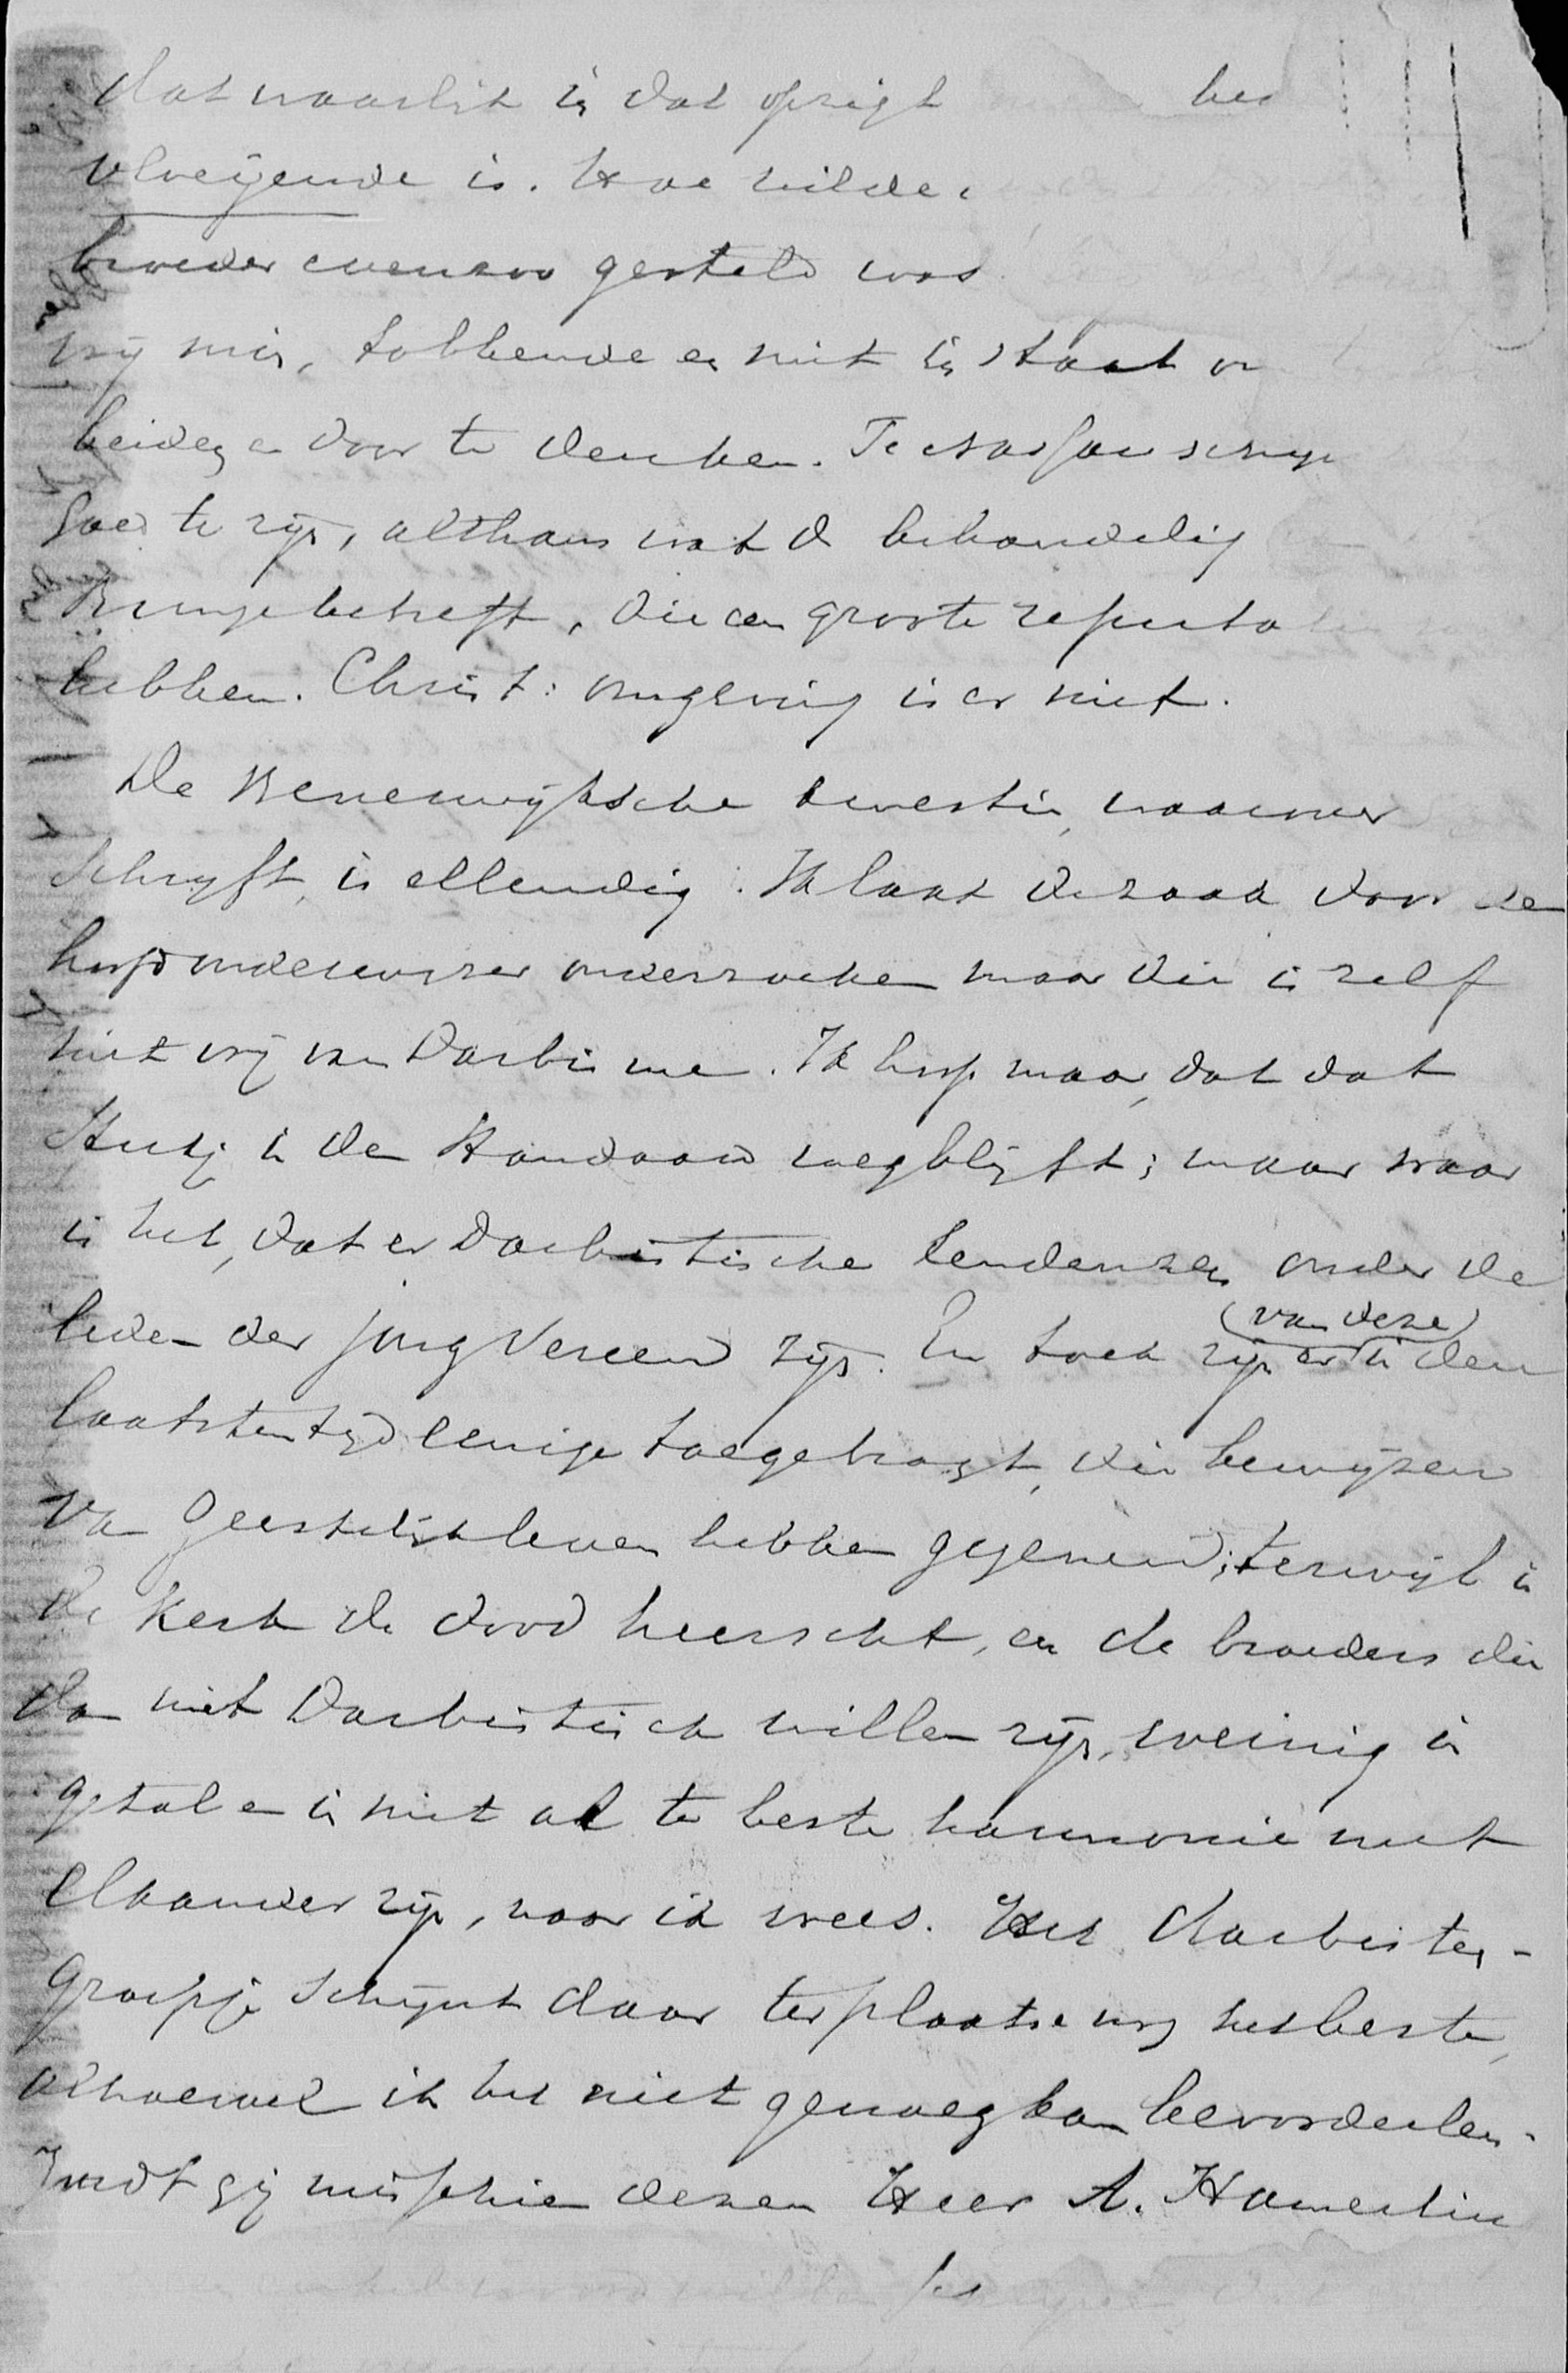 dat waarlijk in dat opzigt het
vloeijende is. Hoe wilde
broeder evenzoo gesteld was
vrij min, tobbende en niet in staat o
beide en door te denken.
goed te zijn, althans wat de behandeling
betreft, die een groote reputa
hebben. Christ: omgeving is er niet.
De kwestie, waarover
schrijft, is ellendig. Ik laat de zaak door den
hoofdonderwijzer onderzoeken maar die is zelf
niet vrij van Darbisme. Ik hoop maar, dat dat
stukj in den Standaard wegblijft; maar waar
is het, dat er Darbistische tendenzen onder de
leden der jong Vereen zijn. En toch zijn er (van deze) in den
laatsten tijd eenige toegebragt, die bewijzen
van geestelijk leven hebben gegeven; terwijl in
de kerk de dood heerscht, en de broeders die
dan niet Darbistisch willen zijn, weinig in
getal en in niet al te beste harmonie met
elkander zijn, naar ik vrees. Het Darbisten-
groepje schijnt daar ter plaatse nog het beste,
alhoewel ik het niet genoeg kan beoordeelen.
Zoudt gij misschien dezen Heer A. Hamerlin